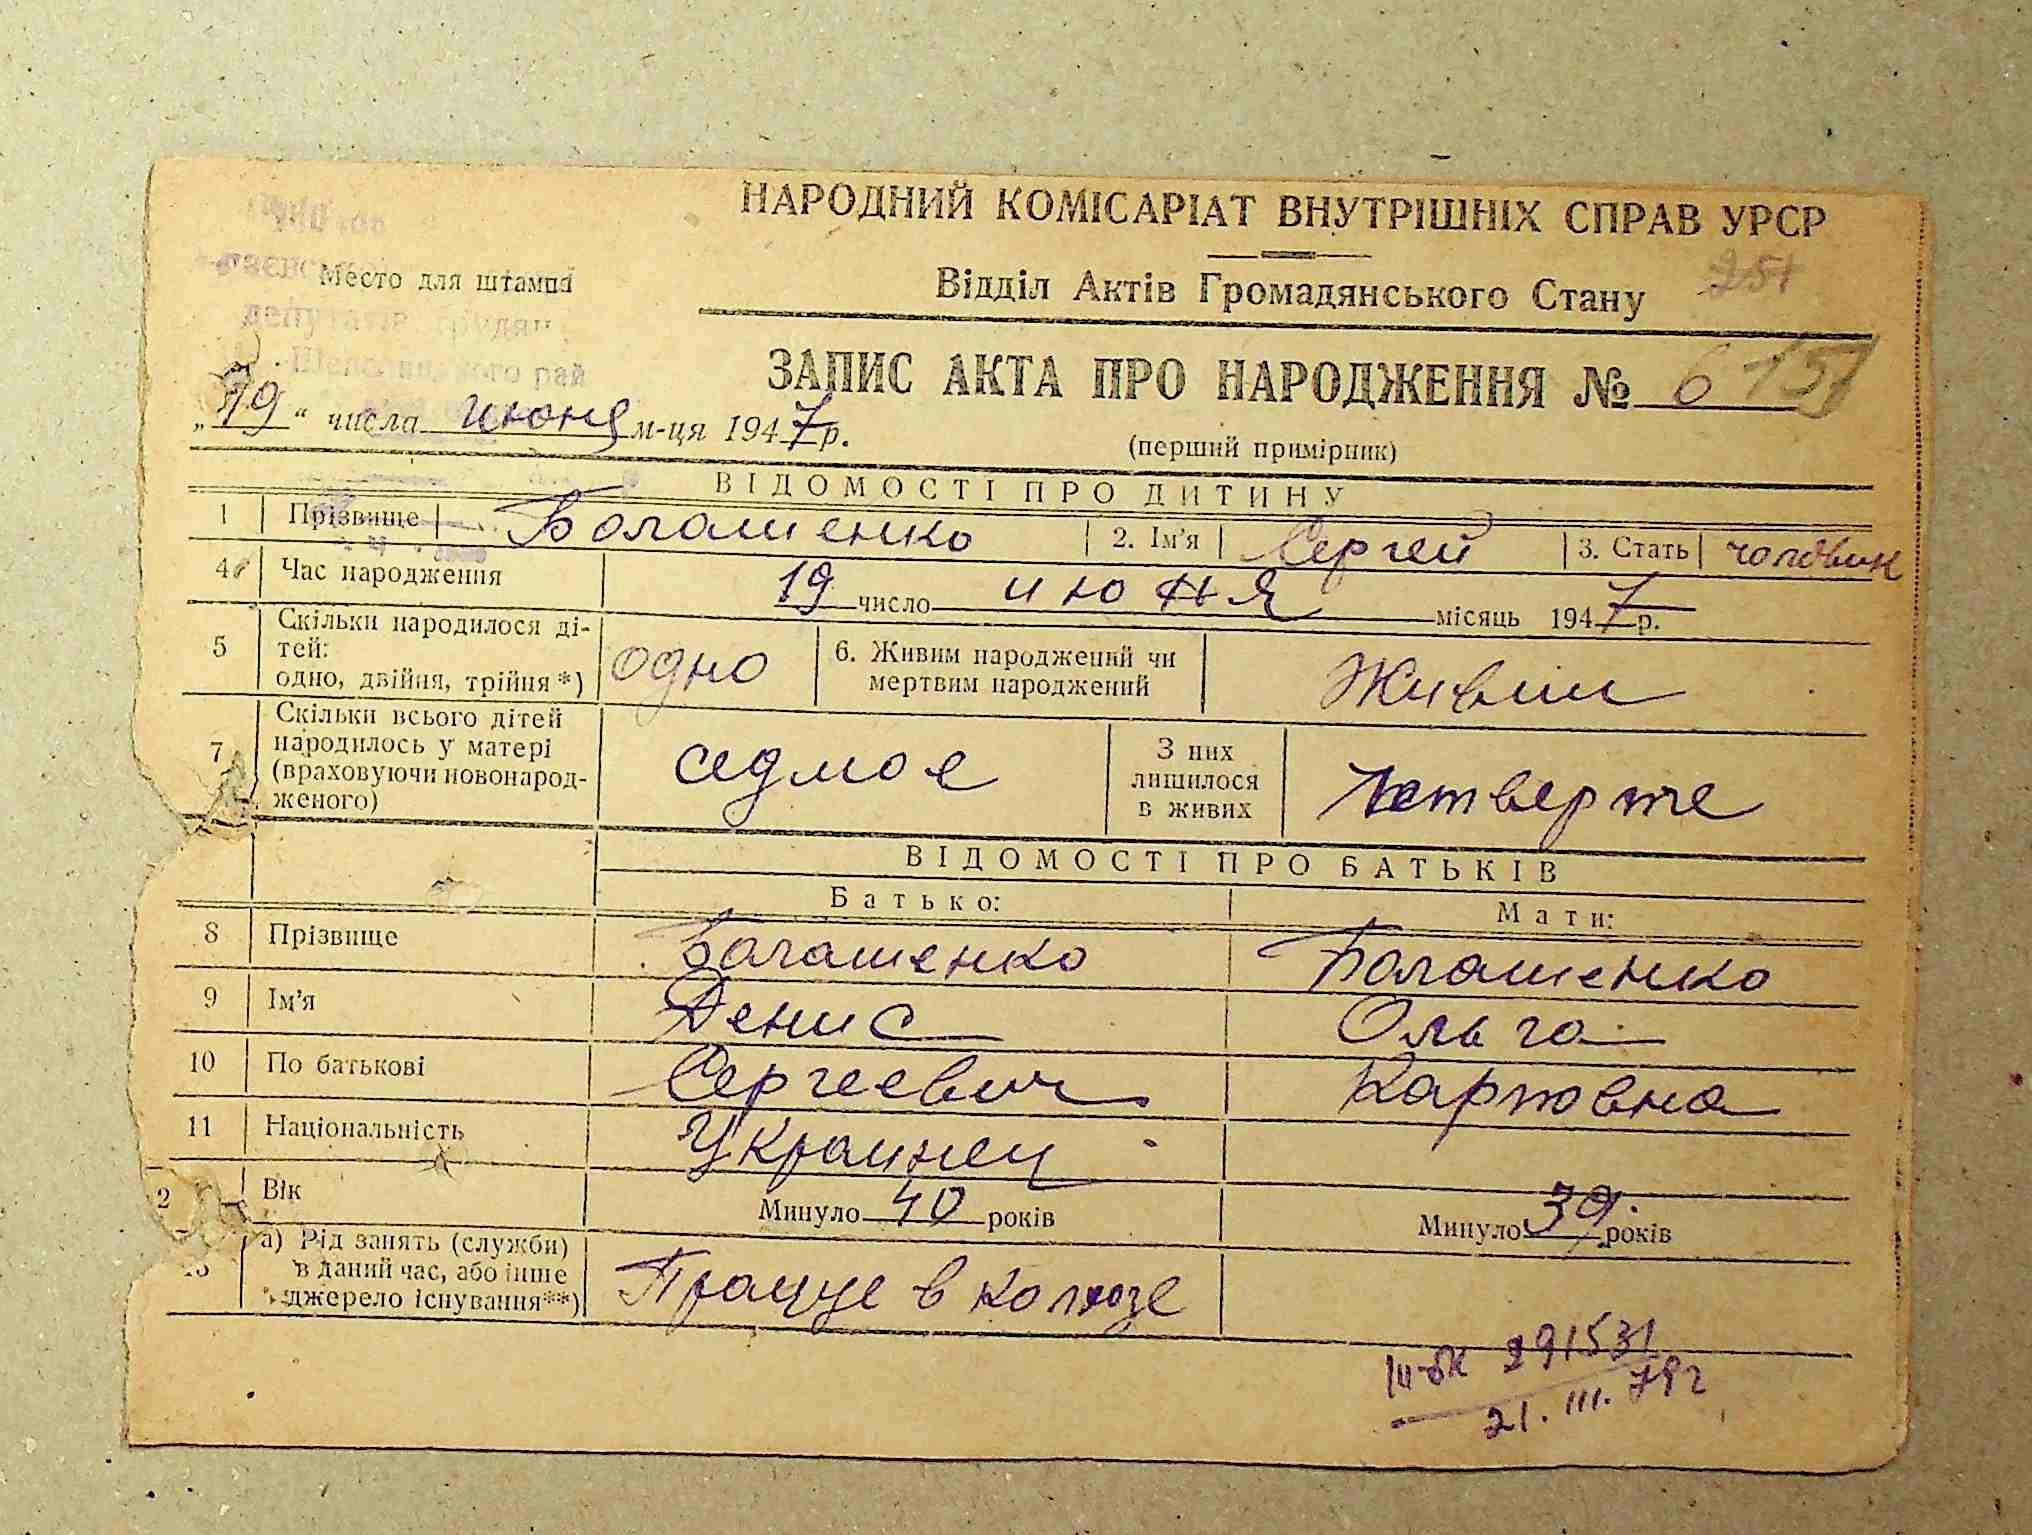 НАРОДНИЙ КОМІСАРІАТ ВНУТРІШНІХ СПРАВ УРСР
Место для штампа
Відділ Актів Громадянського Стану 251
депутатів трудящ
рай
ЗАПИС АКТА ПРО НАРОДЖЕННЯ № 6 157
„19“ числа июня м-ця 1947 р.
(перший примірник)
ВІДОМОСТІ ПРО ДИТИНУ
1 Прізвище Богашенко 2. Ім'я Сергей 3. Стать чоловик
4 Час народження 19 число июня місяць 1947 р.
5 Скільки народилося ді-
тей:
одно, двійня, трійня*) одно 6. Живим народжений чи
мертвим народжений Живим
7 Скільки всього дітей
народилось у матері
(враховуючи новонарод-
женого) седмое З них
лишилося
в живих четверте
ВІДОМОСТІ ПРО БАТЬКІВ
Батько: Мати:
8 Прізвище Богашенко Богашенко
9 Ім'я Денис Ольга
10 По батькові Сергеевич Карповна
11 Національність Украинец
2 Вік Минуло 40 років Минуло 39 років
а) Рід занять (служби)
в даний час, або інше
джерело існування**) Працує в колхозе
III-БК 291531
21.III.79г